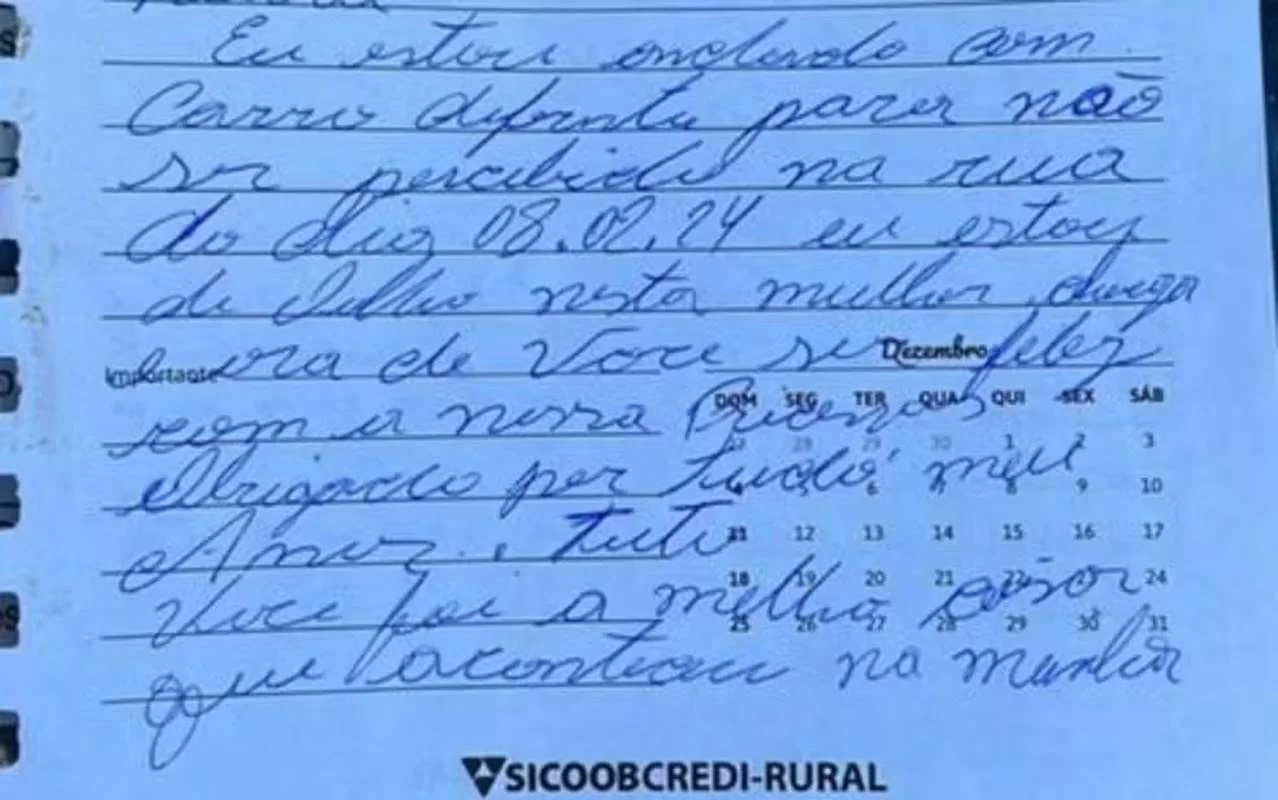 Eu estou andando com
Carro diferente para não
ser percebido na rua
do dia 08.02.24 eu estou
de olho nesta mulher, chega
ora de Voce ser feliz
Importante
Dezembro
com a nossa Princesas
DOM SEG TER QUA QUI SEX SÁB
27 28 29 30 1 2 3
Obrigado por tudo meu
4 5 6 7 8 9 10
Amor. tuto
11 12 13 14 15 16 17
Voce foi a melho coisa
18 19 20 21 22 23 24
25 26 27 28 29 30 31
que aconteceu na minha
SICOOBCREDI-RURAL